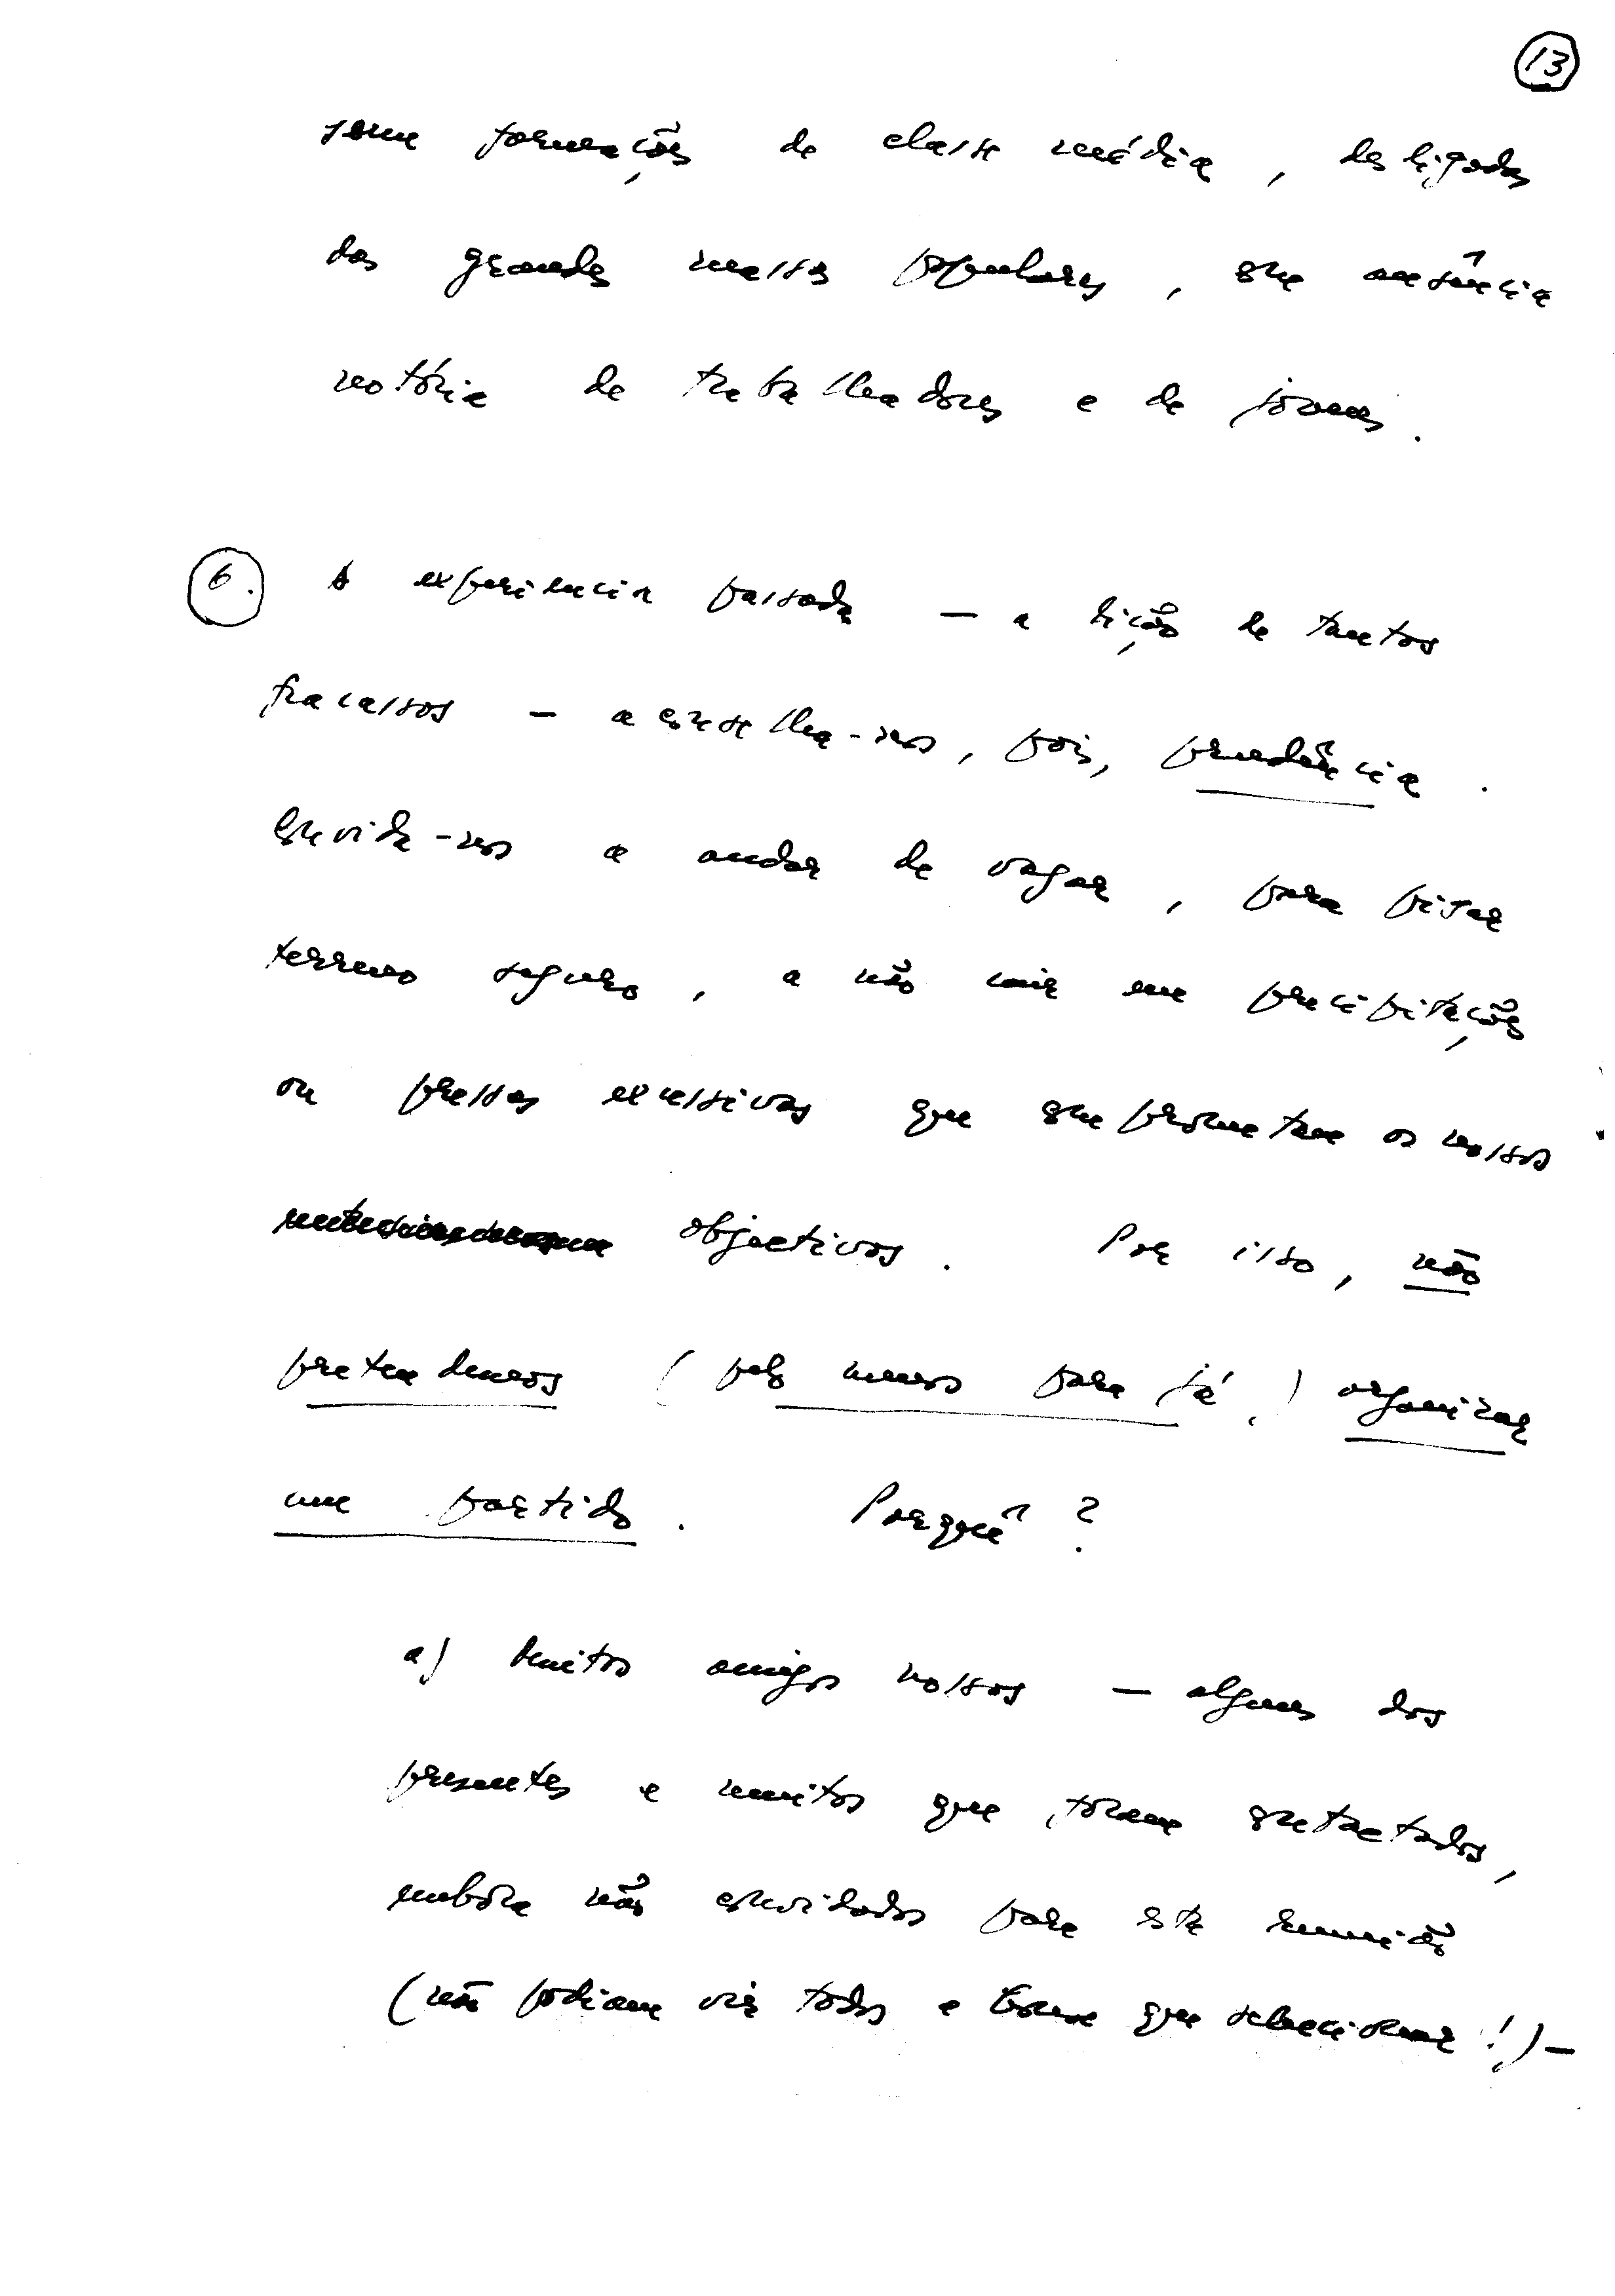 13
sem formações de classe média, desligadas
das grandes massas populares, com ausência
notória de trabalhadores e de jovens.
6. A experiência passada — a lição de tantos
fracassos — aconselha-nos, pois, prudência.
Convida-nos a andar de vagar, para pisar
terreno seguro, a não cair em precipitações
ou pressas excessivas que comprometam os nossos
objectivos. Por isso, não
pretendemos (pelo menos para já!) organizar
um partido. Porquê?
a) Muitos amigos nossos — alguns dos
presentes e muitos que foram contactados,
embora não convidados para esta reunião
(não podiam vir todos e houve que seleccionar!) —